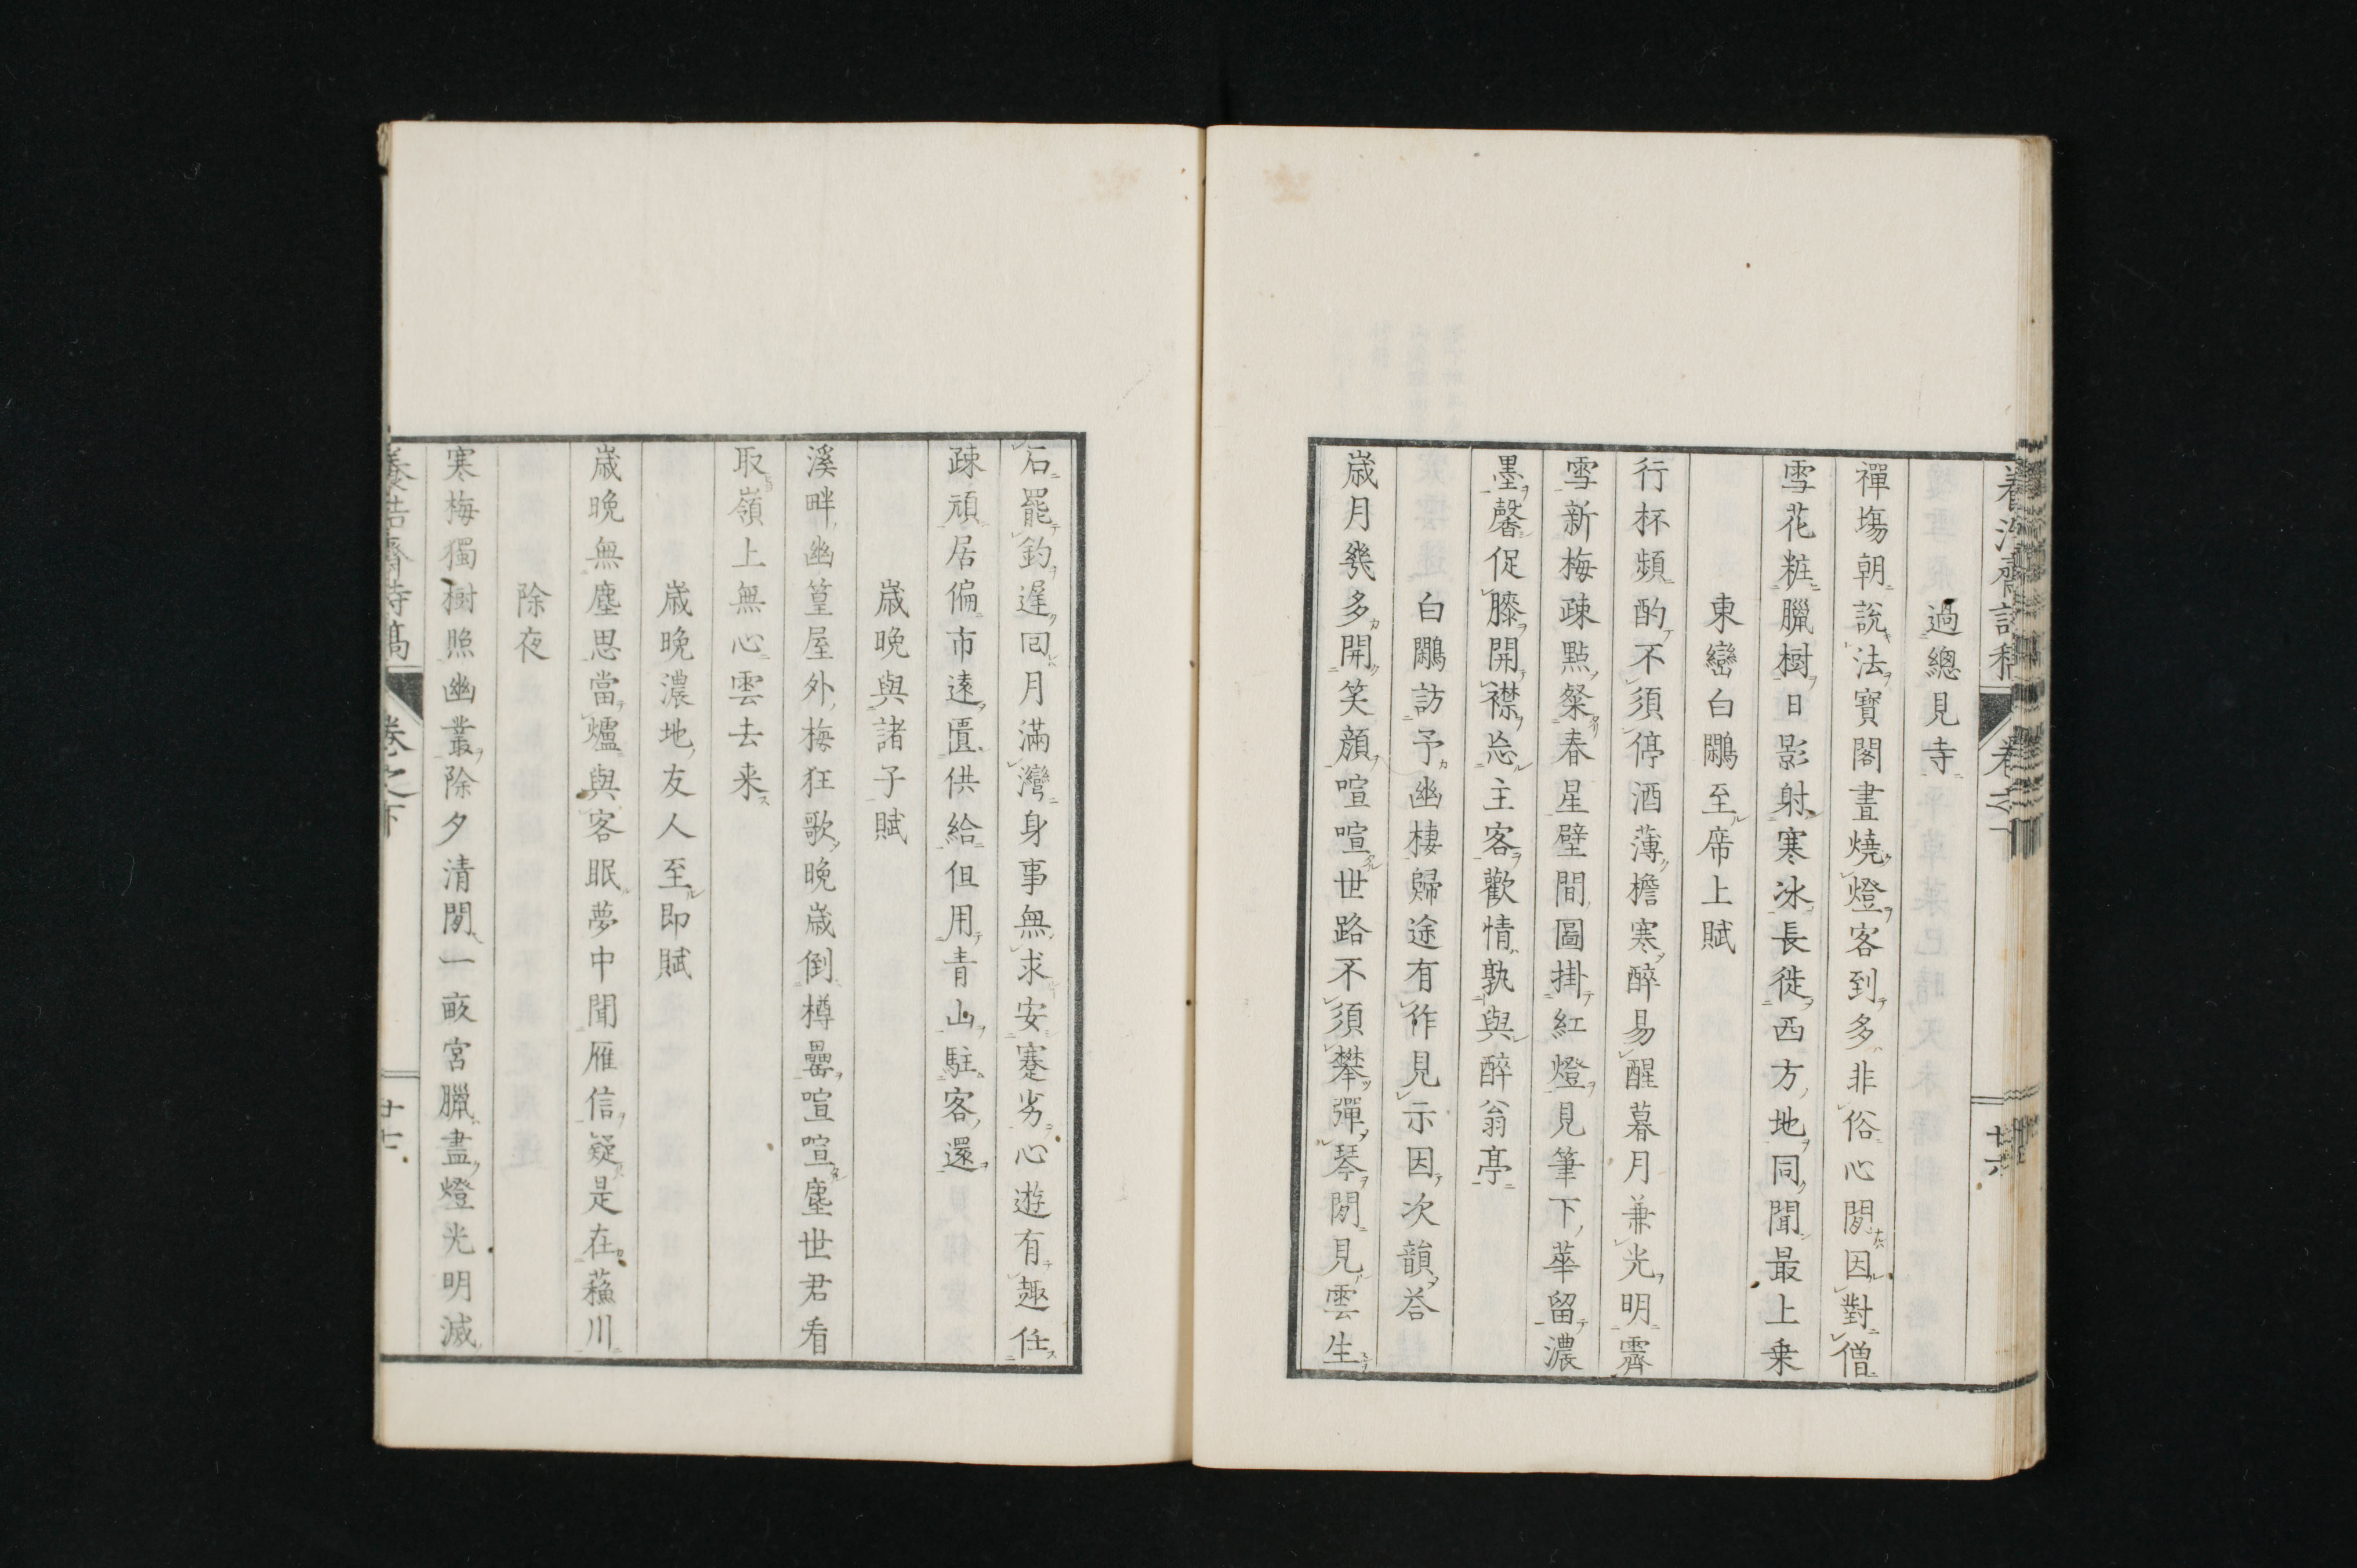 過總見寺
禪塲朝說法寶閣晝燒燈客到多非俗心閒因對僧
雪花粧臘樹日影射寒冰長徙西方地同聞最上乗
東巒白鷴至席上賦
行杯頻酌不須停酒薄檐寒醉易醒暮月兼光明霽
雪新梅疎點粲春星壁間圖掛紅燈見筆下華留濃
墨馨促膝開襟忘主客歡情孰與醉翁亭
白鷴訪予幽棲歸途有作見示因次韻荅
歳月幾多開笑顔喧喧世路不須攀彈琴閒見雲生
石罷釣遅回月滿灣身事無求安蹇劣心遊有趣任
疎頑居偏市遠匱供給但用青山駐客還
歳晩與諸子賦
溪畔幽篁屋外梅狂歌晩歳倒樽罍喧喧塵世君看
取嶺上無心雲去来
歳晩濃地友人至即賦
歳晩無塵思當爐與客眠夢中聞雁信疑是在蘓川
除夜
寒梅獨樹照幽叢除夕清閒一畝宮臘盡燈光明滅
卷之下